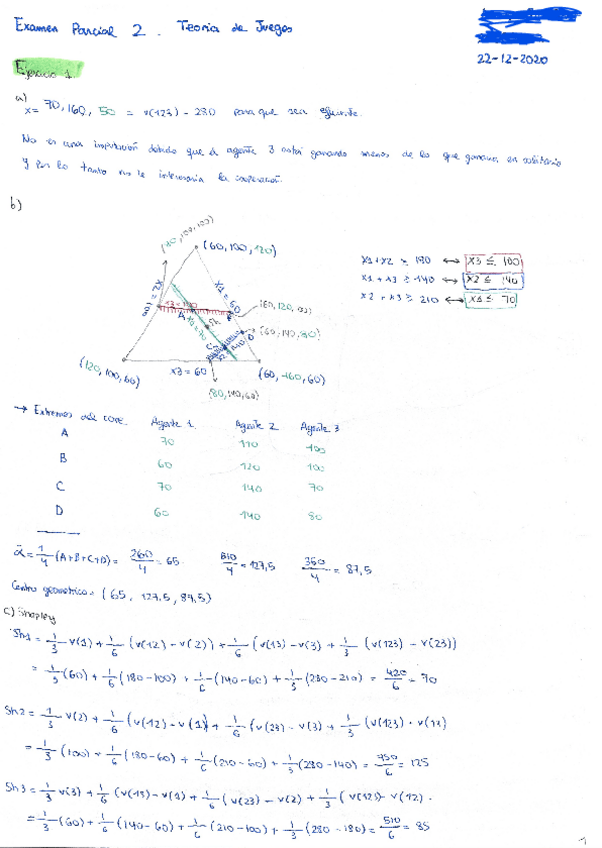 Examen Parcial 2. Teoria de Juegos
22-12-2020
Ejercicio 1.
a)
x = 70, 160, 50 = v(123) - 280 para que sea eficiente.
No es una imputación debido que el agente 3 estai ganando menos de lo que ganaria en solitario
y por lo tanto no le interesaria la cooperación.
b)
(60, 100, 120)
x1+x2 ≥ 180 ↔ x3 ≤ 100
x1 + x3 ≥ 140 ↔ x2 ≤ 140
x2 + x3 ≥ 210 ↔ x1 ≤ 70
x2 = 100
x1 = 60
x3 = 100
A
(60, 120, 100)
x1 = 70
Sh
(60, 140, 80)
C
D
(120, 100, 60)
x3 = 60
(60, 160, 60)
(80, 140, 60)
→ Extremos del core. Agente 1. Agente 2 Agente 3
A 70 110 100
B 60 120 100
C 70 140 70
D 60 140 80
ᾱ = 1/4 (A+B+C+D) = 260/4 = 65. 510/4 = 127,5 350/4 = 87,5
Centro geometrico = (65, 127.5, 87,5)
c) Shapley
Sh1 = 1/3 v(1) + 1/6 (v(12) - v(2)) + 1/6 (v(13) - v(3) + 1/3 (v(123) - v(23))
= 1/3 (60) + 1/6 (180-100) + 1/6 (140-60) + 1/3 (280-210) = 420/6 = 70
Sh2 = 1/3 v(2) + 1/6 (v(12) - v(1)) + 1/6 (v(23) - v(3) + 1/3 (v(123) - v(13)
= 1/3 (100) + 1/6 (180-60) + 1/6 (210-60) + 1/3 (280-140) = 750/6 = 125
Sh3 = 1/3 v(3) + 1/6 (v(13) - v(1) + 1/6 (v(23) - v(2) + 1/3 (v(123) - v(12).
= 1/3 (60) + 1/6 (140-60) + 1/6 (210-100) + 1/3 (280-180) = 510/6 = 85